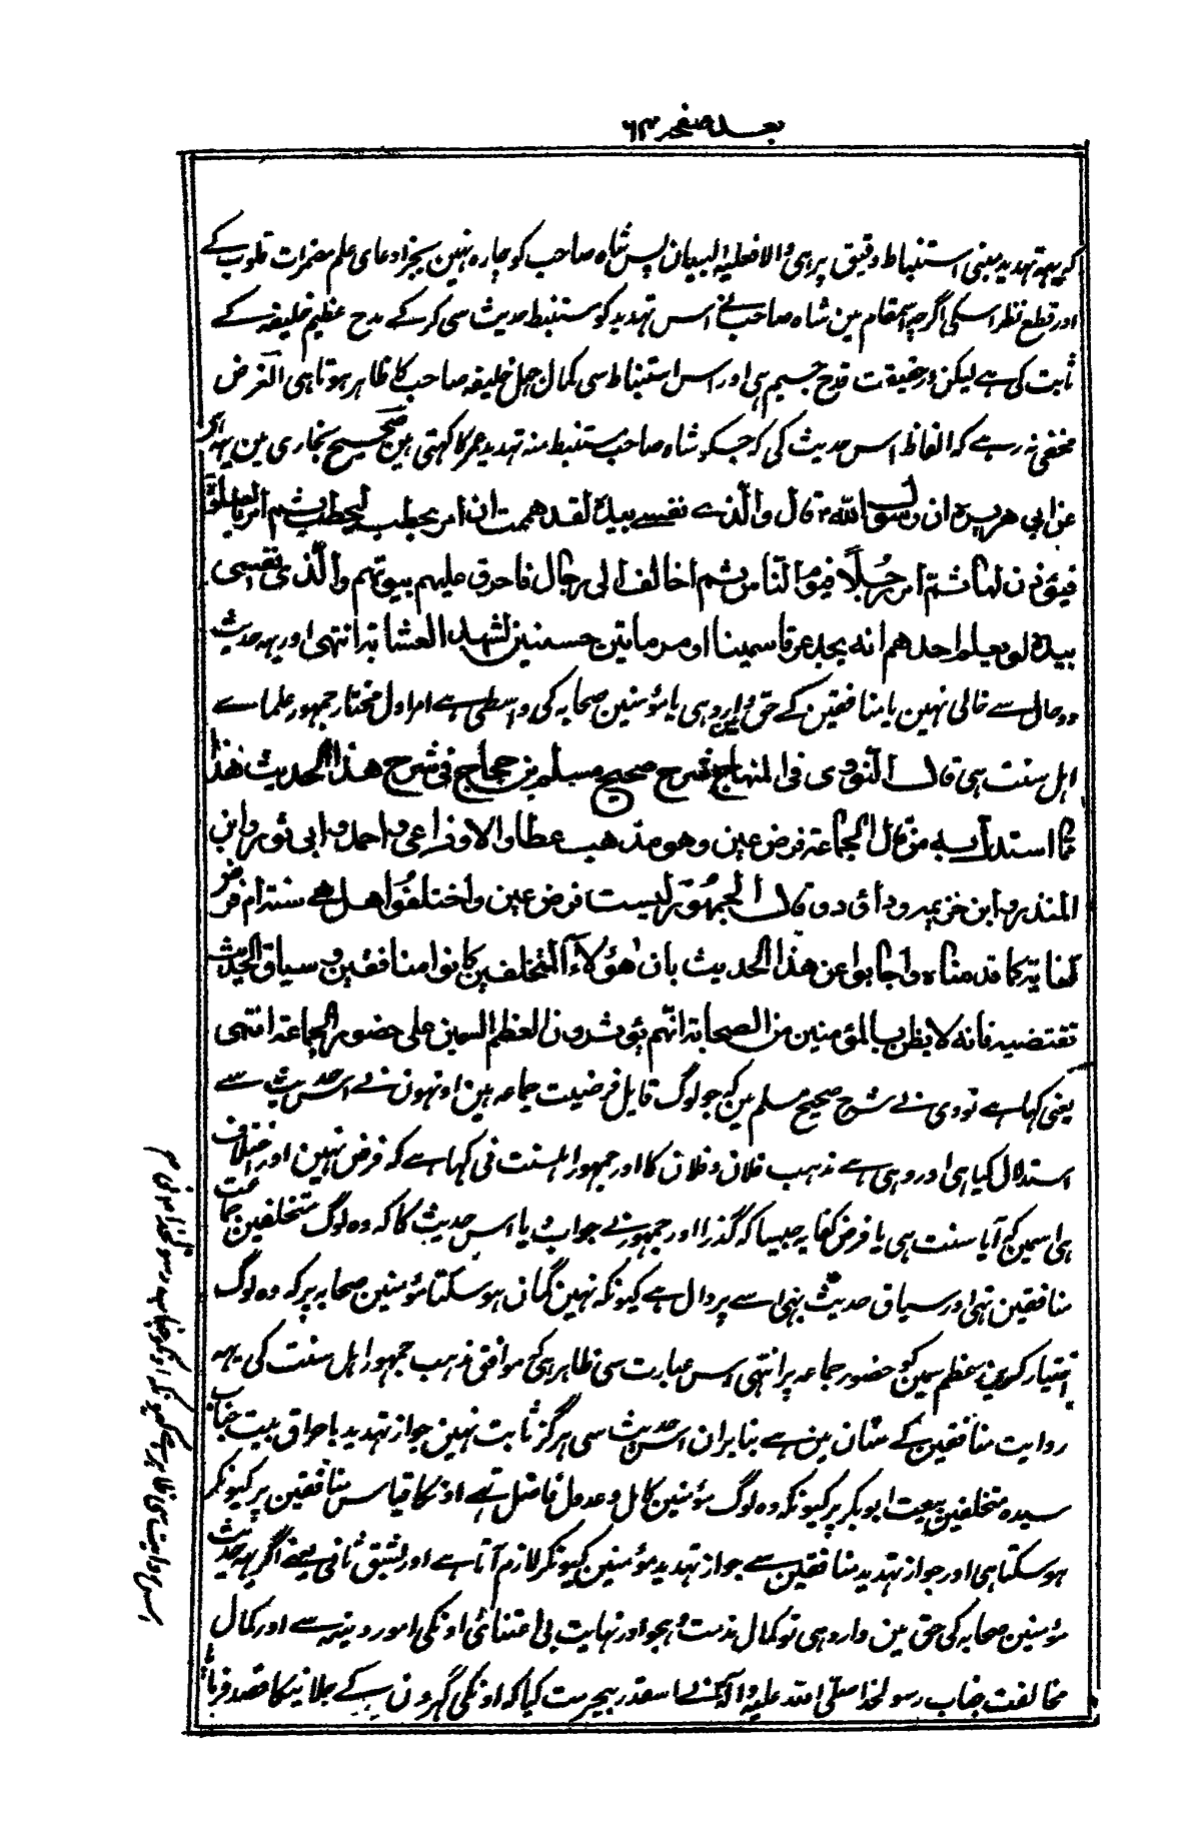 بعد صفحہ ۶۳
کہ یہہ تہدید مبنی استنباط دقیق پر ہی والا فعلیہ البیان پس شاہ صاحب کو چارہ نہین بجز ادعای علم مضمرات قلوب کے
اور قطع نظر اسکی اگرچہ اسمقام مین شاہ صاحب نے اس تہدید کو مستنبط حدیث سی کر کے مدح عظیم خلیفہ کے
ثابت کی ہے لیکن درحقیقت قدح جسیم ہی اور اس استنباط سی کمال جہل خلیفہ صاحب کا ظاہر ہوتا ہی الغرض
مخفی نہ رہے کہ الفاظ اس حدیث کی کہ جسکو شاہ صاحب مستنبط منہ تہدید عمر کا کہتی ہین صحیح بخاری مین یہہ ہی
عن ابی هریرة ان رسول الله قال والذے نفسے بیدہ لقد هممت ان امر بحطب لیحطب ثم امر بالصلوة
فیؤذن لها ثم امر رجلا فیؤم الناس ثم اخالف الی رجال فاحرق علیهم بیوتهم والذی نفسی
بیدہ لو یعلم احدهم انه یجد عرقا سمینا او مرماتین حسنتین لشهد العشا انتهی اور یہہ حدیث
دو حال سے خالی نہین یا منافقین کے حق مین وارد ہی یا مؤمنین صحابہ کی واسطی ہے امر اول مختار جمہور علماے
اہل سنت ہی قال النووی فی المنهاج شرح صحیح مسلم بن حجاج فی شرح هذا الحدیث هذا
مما استدل به من قال الجماعة فرض عین وهو مذهب عطا والاوزاعی واحمد وابی ثور وابن
المنذر وابن خزیمه وداؤد وقال الجمهور لیست فرض عین واختلفوا هل هے سنة ام فرض
کفایة کما قدمناه واجابوا عن هذا الحدیث بان هؤلاء المتخلفین کانوا منافقین وسیاق الحدیث
تقتضیه فانه لا یظن بالمؤمنین من الصحابة انهم یؤثرون العظم السمین علی حضور الجماعة انتهی
یعنی کہا ہے نووی نے شرح صحیح مسلم مین کہ جو لوگ قایل فرضیت جماعہ ہین اونہون نے اس حدیث سے
استدلال کیا ہی اور وہی ہے مذہب فلان وفلان کا اور جمہور اہلسنت نی کہا ہے کہ فرض نہین اور اختلاف
ہی اسمین کہ آیا سنت ہی یا فرض کفایہ جیسا کہ گذرا اور جمہور نے جواب دیا اس حدیث کا کہ وہ لوگ متخلفین جماعت
منافقین تہی اور سیاق حدیث بہی اسے پر دال ہے کیونکہ نہین گمان ہو سکتا مؤمنین صحابہ پر کہ وہ لوگ
اختیار کرین عظم سمین کو حضور جماعہ پر انتہی اس عبارت سی ظاہر ہی کہ موافق مذہب جمہور اہل سنت کی یہہ
روایت منافقین کے شان مین ہے بنا بران اس حدیث سی ہرگز ثابت نہین جواز تہدید باحراق بیت جناب
سیدہ متخلفین بیعت ابو بکر پر کیونکہ وہ لوگ مؤمنین کامل و عدول فاضل تہے اونکا قیاس منافقین پر کیونکر
ہو سکتا ہی اور جواز تہدید منافقین سے جواز تہدید مؤمنین کیونکر لازم آتا ہے اور بشق ثانی یعنے اگر یہہ حدیث
مؤمنین صحابہ کی حق مین وارد ہی تو کمال مذمت و ہجو اور نہایت بی اعتنائی اونکی امور دینیہ سے اور کمال
مخالفت جناب رسولخدا صلی اللہ علیہ و آلہ کہ نے اسقدر بیحرمت کیا کہ اونکی گہرون کے جلانیکا قصد فرمایا
اس روایت سی ظاہر ہے کیونکہ اونکو جناب رسولخدا